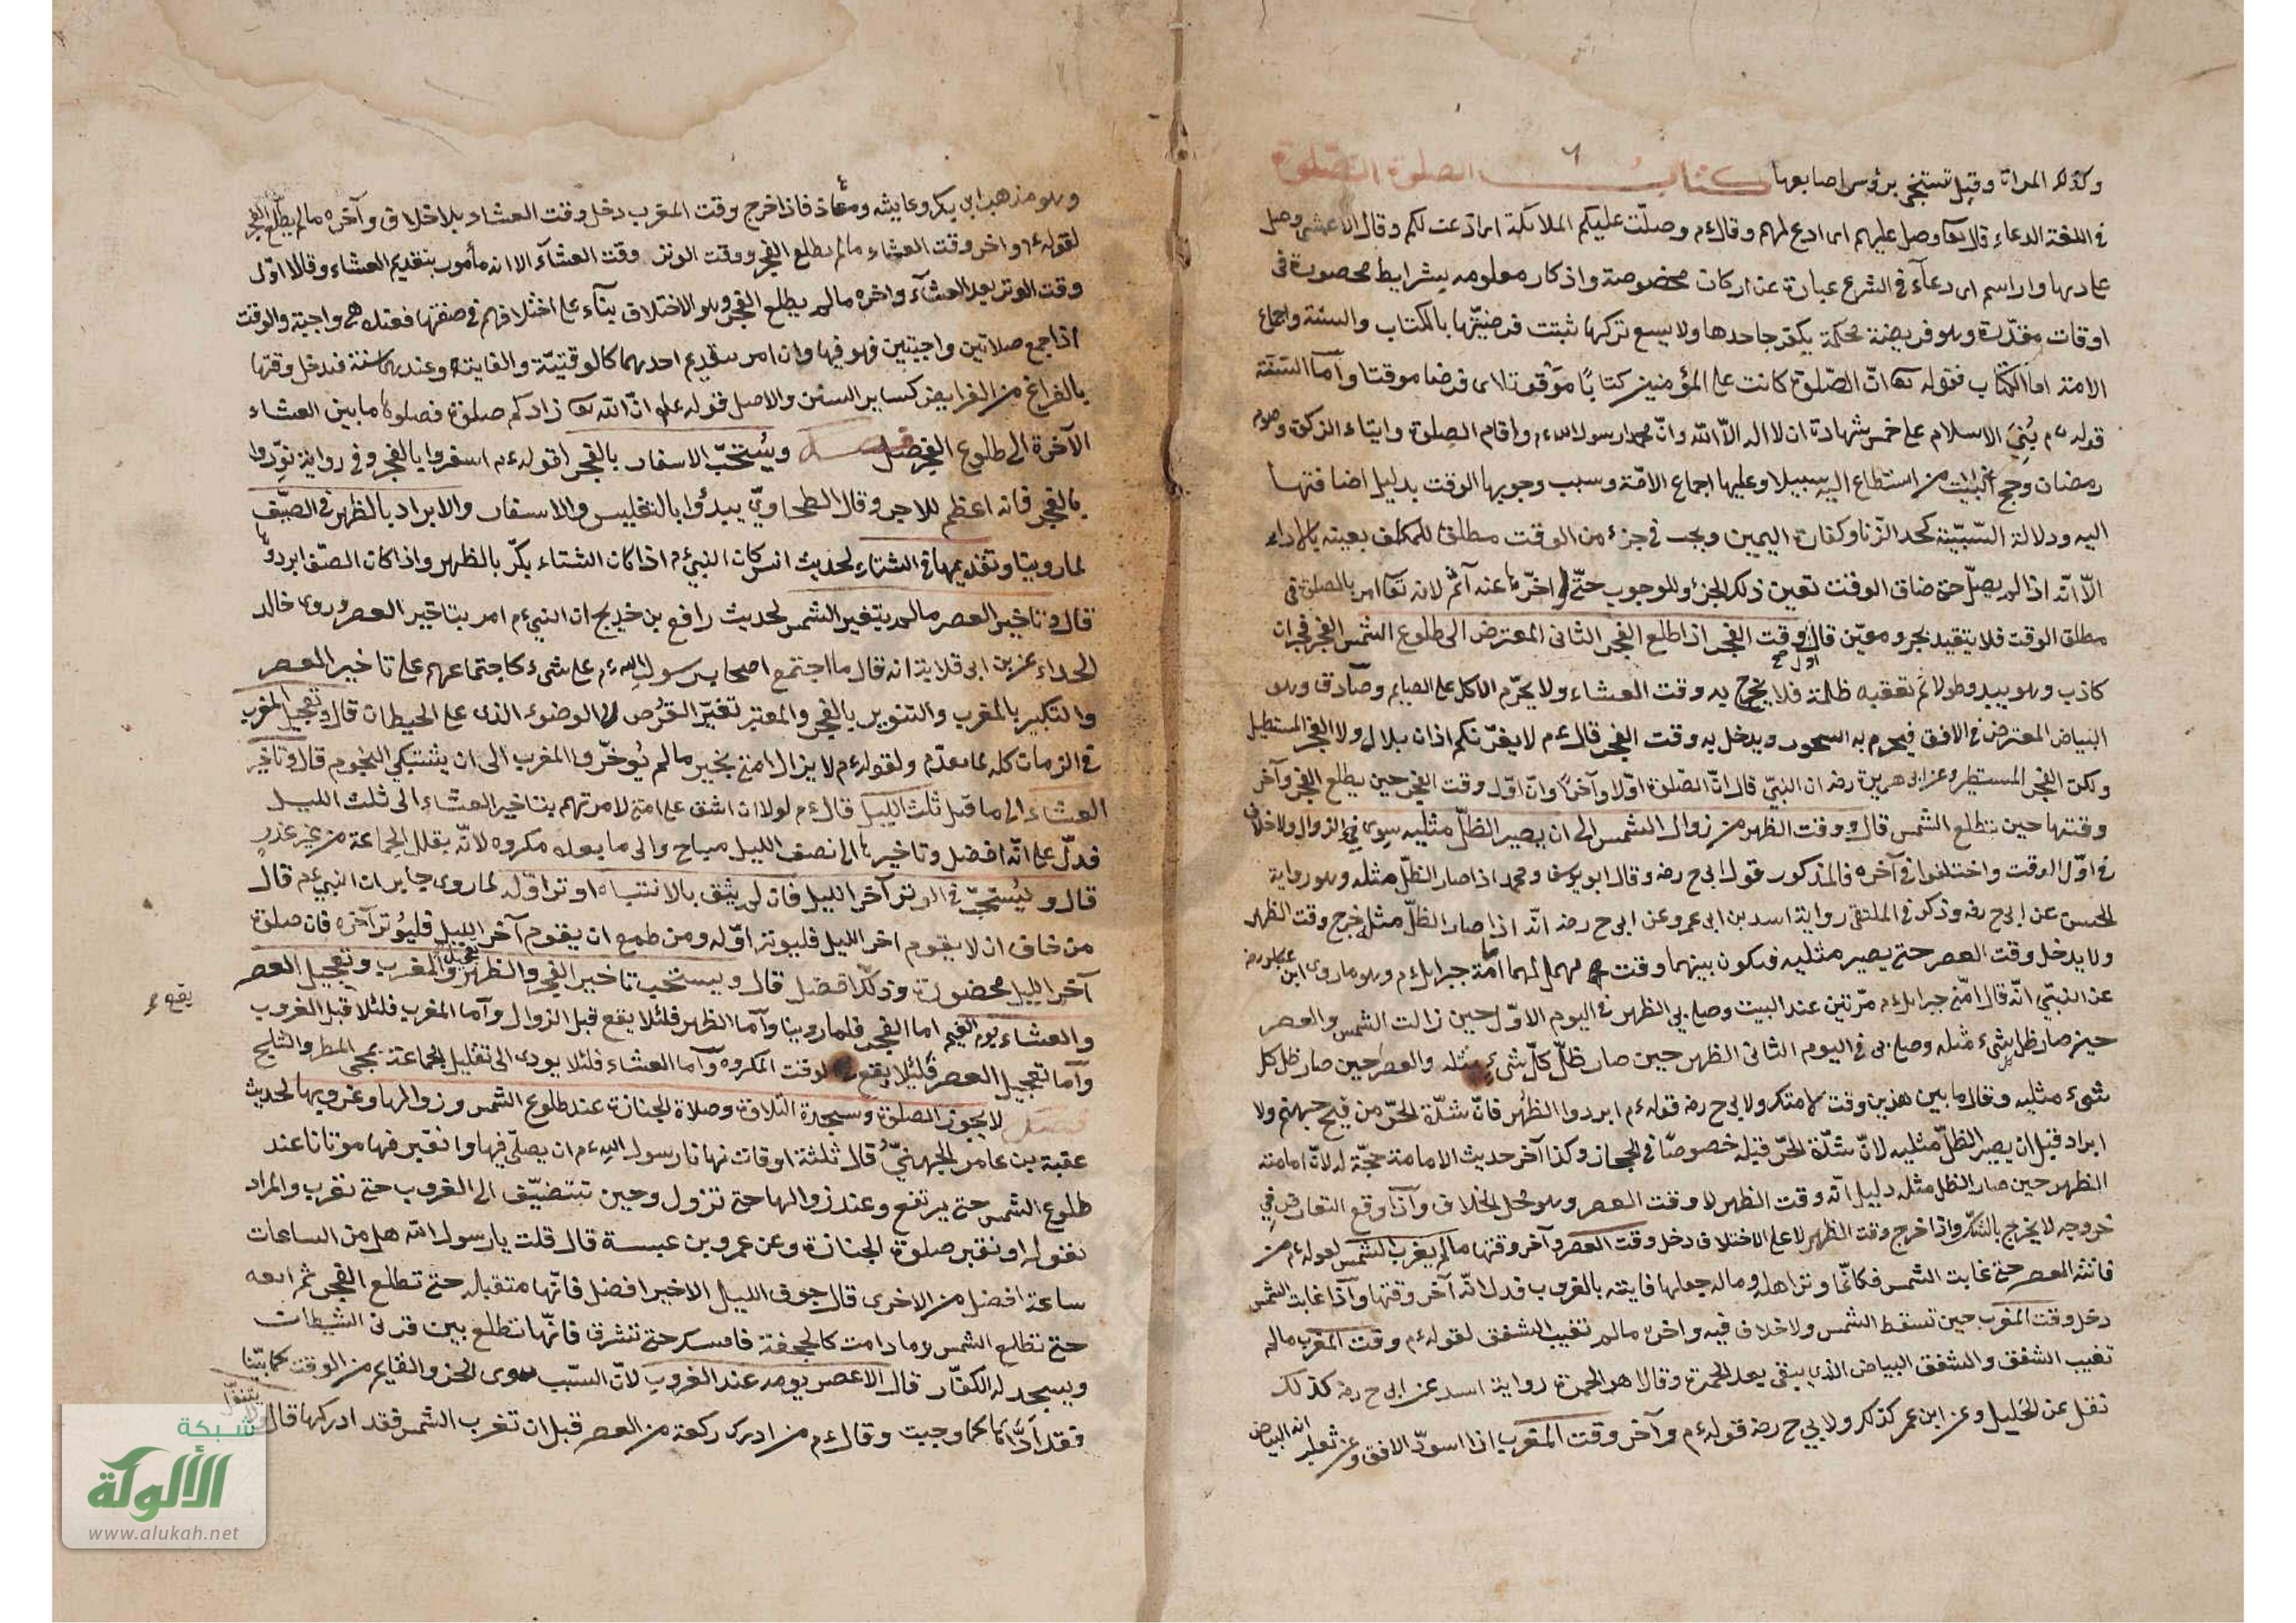 وكذلك المراة وقيل تستنجى برؤس اصابعها كتاب الصلوة الصّلوة
فى اللغة الدعاء قال تعا وصل عليهم اى ادع لهم وقال ءم وصلّت عليكم الملائكة اى دعت لكم وقال الاعشى وصل
على دنها وارتسم اى دعآء فى الشرع عبارة عن اركان مخصوصة واذكار معلومه بشرايط محصورة فى
اوقات مقدّرة وهو فريضة محكمة يكفر جاحدها ولا يسع تركها ثبتت فرضيّتها بالكتاب والسنّة واجماع
الامة اما الكتاب فقوله تعا انّ الصّلوة كانت على المؤمنين كتابًا مَوقوتا اى فرضا موقتا وآما السّنّة
قوله ءم بُنِى الاسلام على خمس شهادة ان لا اله الاّ الله وانّ محمدا رسول الله ءم واقام الصلوة وايتاء الزكوة وصوم
رمضان وحج البيت من استطاع اليه سبيلا وعليها اجماع الامّة وسبب وجوبها الوقت بدليل اضافتها
اليه ودلالة السّببيّة كحد الزّنا وكفارة اليمين ويجب فى جزء من الوقت مطلق للمكلف بعينه بالاداء
الاّ انّه اذا لم يصلّ حتى ضاق الوقت تعين ذلك الجزء للوجوب حتّى لو اخرّها عنه آثم لانه تعا امر بالصلوة فى
مطلق الوقت فلا يتقيد بجزء معيّن قال وقت الفجر اذا طلع الفجر الثانى المعترض الى طلوع الشمس الفجر فجران
كاذب وهو يبدو طولا ثم تعقبه ظلمة فلا يخرج به وقت العشاء ولا يحرّم الاكل على الصايم وصادق وهو
البياض المعترض فى الافق فيحرم به السحور ويدخل به وقت الفجر قال ءم لا يغرّنكم اذان بلال ولا الفجر المستطيل
ولكن الفجر المستطير وعن ابى هريرة رضه ان النبىّ قال انّ الصّلوة اوّلا وآخرًا وانّ اوّل وقت الفجر حين يطلع الفجر وآخر
وقتها حين تطلع الشمس قال ووقت الظهر من زوال الشمس الى ان يصير الظلّ مثليه سِوى فىء الزوال ولا خلاف
فى اوّل الوقت واختلفوا فى آخره فالمذكور قول ابى ح رضه وقال ابو يوسف ومحمد اذا صار الظلّ مثله وهو رواية
الحسن عن ابى ح رضه وذكر فى الملتقى رواية اسد بن ابى عمرو عن ابى ح رضه انّه اذا صار الظلّ مثله خرج وقت الظهر
ولا يدخل وقت العصر حتى يصير مثليه فيكون بينهما وقت مهمل لهما امامة جبرايل ءم وهو ما روى ابن عباس رضه
عن النبىّ انّه قال امّنى جبرايل ءم مرّتين عند البيت وصلى بى الظهر فى اليوم الاوّل حين زالت الشمس والعصر
حين صار ظل كل شىء مثله وصلى بى فى اليوم الثانى الظهر حين صار ظلّ كلّ شىء مثله والعصر حين صار ظل كل
شىء مثليه وقال ما بين هذين وقت لامتك ولابى ح رضه قوله ءم ابردوا الظهر فانّ شدّة الحرّ من فيح جهنم ولا
ابراد قبل ان يصير الظلّ مثليه لانّ شدّة الحرّ قبله خصوصًا فى الحجاز وكذا آخر حديث الامامة حجّة له لانّ امامته
الظهر حين صار الظل مثله دليل انّه وقت الظهر لا وقت العصر وهو محل الخلاف وآذا وقع التعارض فى
خروجه لا يخرج بالشكّ واذا خرج وقت الظهر لا على الاختلاف دخل وقت العصر وآخر وقتها ما لم يغرب الشمس لقوله ءم من
فاتته العصر حتى غابت الشمس فكانّما وتر اهله وماله جعلها فايتة بالغروب فدل انّه آخر وقتها وآذا غابت الشمس
دخل وقت المغرب حين تسقط الشمس ولا خلاف فيه واخره ما لم تغيب الشفق لقوله ءم وقت المغرب ما لم
تغيب الشفق والشفق البياض الذى يبقى بعد الحمرة وقالا هو الحمرة رواية اسد عن ابى ح رضه كذلك
نقل عن الخليل وعن ابن عمر كذلك ولابى ح رضه قوله ءم وآخر وقت المغرب اذا اسودّ الافق وعن ثعلب انه البياض
وهو مذهب ابى بكر وعايشه ومعاذ فاذا خرج وقت المغرب دخل وقت العشاء بلا خلاف وآخره ما لم يطلع الفجر
لقوله ءم واخر وقت العشاء ما لم يطلع الفجر ووقت الوتر وقت العشآء الا انه مأمور بتقديم العشاء وقالا اوّل
وقت الوتر بعد العشآء وآخره ما لم يطلع الفجر وهو الاختلاف بنآء على اختلافهم فى صفتها فعنده هى واجبة والوقت
اذا جمع صلاتين واجبتين فهو فيها وان امر بتقديم احدهما كالوقتيّة والفايته وعندهما سنة فيدخل وقتها
بالفراغ من الفرايض كساير السنن والاصل قوله علم انّ الله تعا زادكم صلوة فصلوها ما بين العشاء
الآخرة الى طلوع الفجر فصل ويُستحبّ الاسفار بالفجر لقوله ءم اسفروا بالفجر وفى رواية نوّروا
بالفجر فانه اعظم للاجر وقال الطحاوىّ يبدؤا بالتغليس والاسفار والابراد بالظهر فى الصيّف
لما روينا وتقديمها فى الشتاء لحديث انس كان النبى ءم اذا كان الشتاء بكّر بالظهر واذا كان الصيّف ابرد بها
قال وتاخير العصر ما لم يتغير الشمس لحديث رافع بن خديج ان النبى ءم امر بتاخير العصر وروى خالد
الحذاء عن بن ابى قلابة انه قال ما اجتمع اصحاب رسول الله ءم على شىء كاجتماعهم على تاخير العصر
والتبكير بالمغرب والتنوير بالفجر والمعتبر تغيّر القرُص لا الوضوء الذى على الحيطان قال وتعجيل المغرب
فى الزمان كله لما تقدّم ولقوله ءم لا يزال امتى بخير ما لم يُوخّروا المغرب الى ان يشتبكى النجوم قال وتاخير
العشاء الى ما قبل ثلث الليل قال ءم لولا ان اشق على امتى لامرتهم بتاخير العشاء الى ثلث الليل
فدلّ على انّه افضل وتاخيرها الى نصف الليل مباح والى ما بعده مكروه لانّه يقلل الجماعة من غير عذرٍ
قال ويُستحبّ فى الوتر آخر الليل فان لم يثق بالانتباه اوتر اوّله لما روى جابر ان النبى ءم قال
من خاف ان لا يقوم اخر الليل فليوتر اوّله ومن طمع ان يقوم آخر الليل فليُوتر آخره فان صلوة
آخر الليل محضورة وذلك افضل قال ويستحب تاخير الفجر والظهر والمغرب وتعجيل العصر
والعشاء يوم الغيم اما الفجر فلما روينا وآما الظهر فلئلا يقع قبل الزوال وآما المغرب فلئلا قبل الغروب
يقع
وآما تعجيل العصر فلئلا يقع لوقت المكروه وآما العشاء فلئلا يودى الى تقليل الجماعة بمجى المطر والثلج
فصل لا يجوز الصلوة وسجدة التلاوة وصلاة الجنازة عند طلوع الشمس وزوالها وغروبها لحديث
عقبة بن عامر الجهنىّ قال ثلثة اوقات نهانا رسول الله ءم ان يصلّى فيها وان نقبر فيها موتانا عند
طلوع الشمس حتى يرتفع وعند زوالها حتى تزول وحين تتضيّف الى الغروب حتى تغرب والمراد
بقوله او نقبر صلوة الجنازة وعن عمرو بن عبسة قال قلت يا رسول الله هل من الساعات
ساعة افضل من الاخرى قال جوف الليل الاخير افضل فانّها متقبله حتى تطلع الفجر ثم انهه
حتى تطلع الشمس وما دامت كالحجفة فامسك حتى تشرق فانّها تطلع بين قرنى الشيطان
ويسجد له الكفّار قال الا عصر يومه عند الغروب لانّ السبّب سوى الجزء القايم من الوقت كما بيّنا
فقد ادّاها كما وجبت وقال ءم من ادرك ركعة من العصر قبل ان تغرب الشمس فقد ادركها قال ولا يتنفّل
شبكة
الألوكة
www.alukah.net